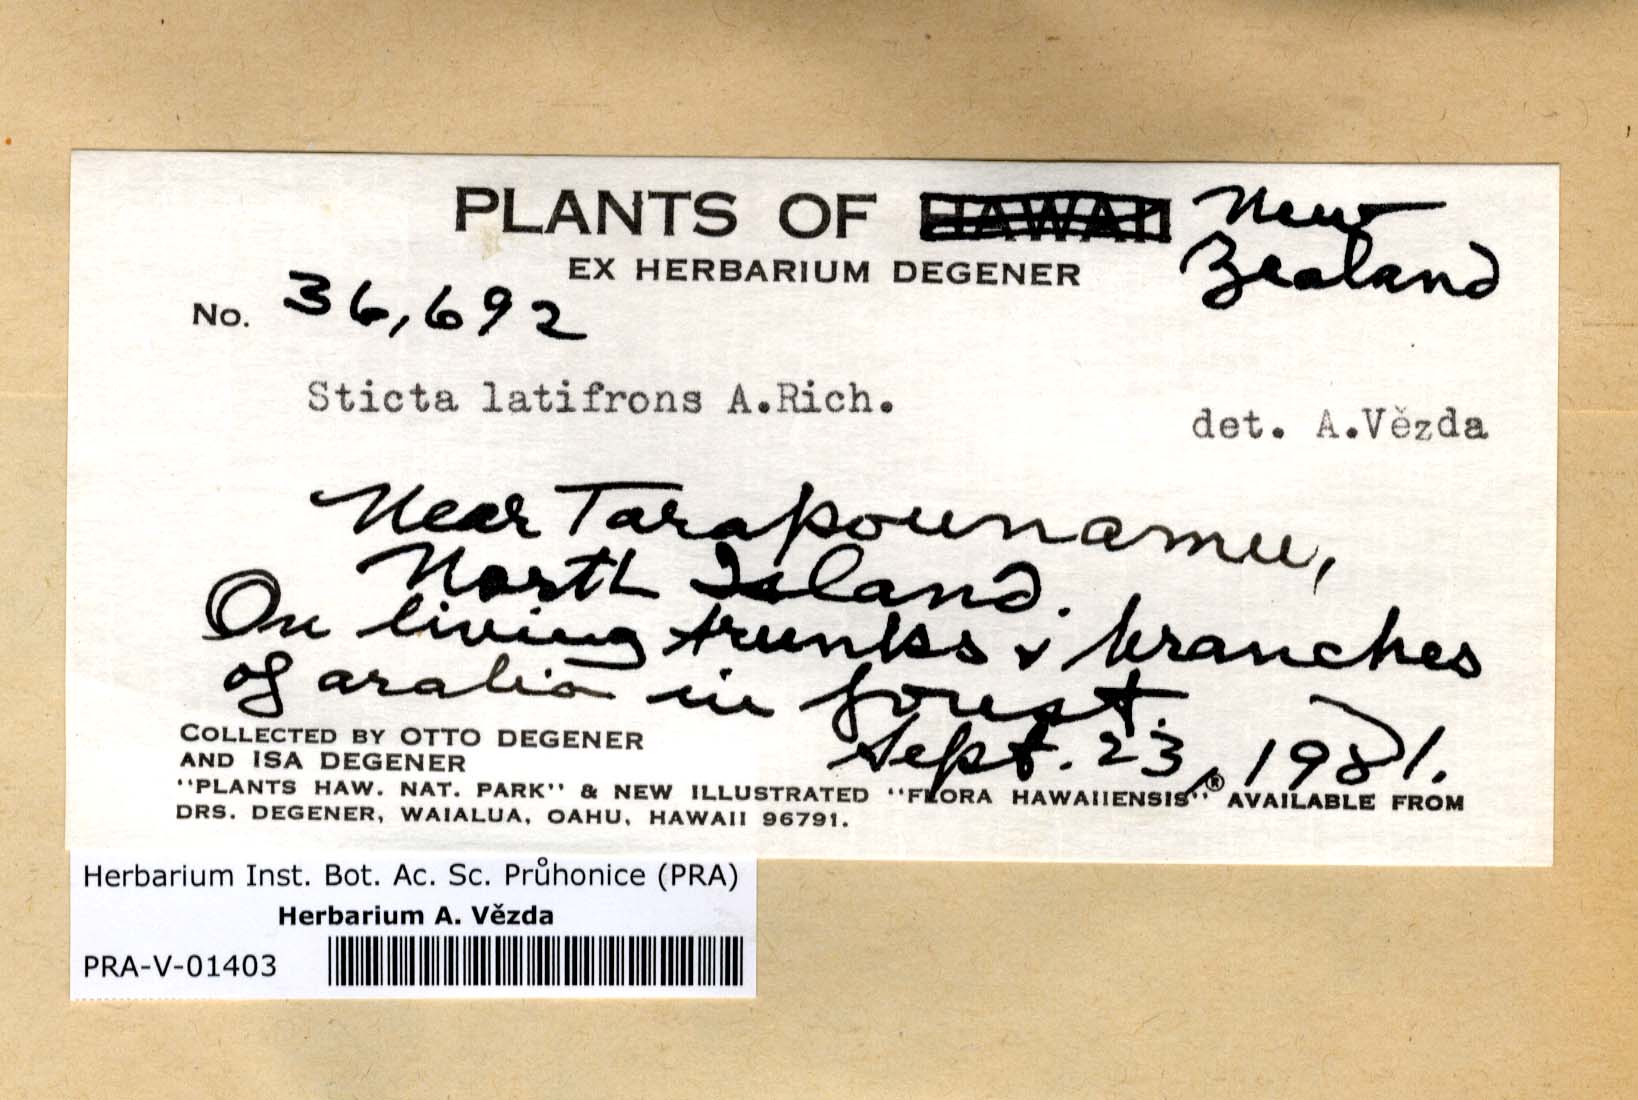 PLANTS OF HAWAII New
Zealand
EX HERBARIUM DEGENER
No. 36,692
Sticta latifrons A.Rich.
det. A.Vězda
Near Tarapounamu,
North Island.
On living trunks & branches
of aralia in forest.
Sept. 23, 1981.
COLLECTED BY OTTO DEGENER
AND ISA DEGENER
"PLANTS HAW. NAT. PARK" & NEW ILLUSTRATED "FLORA HAWAIIENSIS"® AVAILABLE FROM
DRS. DEGENER, WAIALUA, OAHU, HAWAII 96791.
Herbarium Inst. Bot. Ac. Sc. Průhonice (PRA)
Herbarium A. Vězda
PRA-V-01403